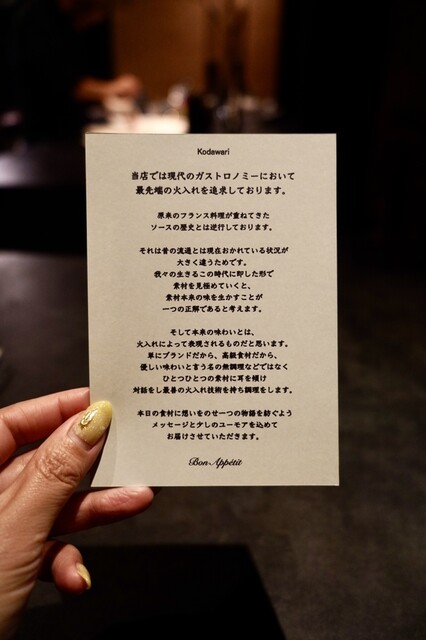 Kodawari
当店では現代のガストロノミーにおいて
最先端の火入れを追求しております。
原来のフランス料理が重ねてきた
ソースの歴史とは逆行しております。
それは昔の流通とは現在おかれている状況が
大きく違うためです。
我々の生きるこの時代に即した形で
素材を見極めていくと、
素材本来の味を生かすことが
一つの正解であると考えます。
そして本来の味わいとは、
火入れによって表現されるものだと思います。
単にブランドだから、高級食材だから、
優しい味わいと言う名の無調理などではなく
ひとつひとつの素材に耳を傾け
対話をし最善の火入れ技術を持ち調理をします。
本日の食材に想いをのせ一つの物語を紡ぐよう
メッセージと少しのユーモアを込めて
お届けさせていただきます。
Bon Appétit